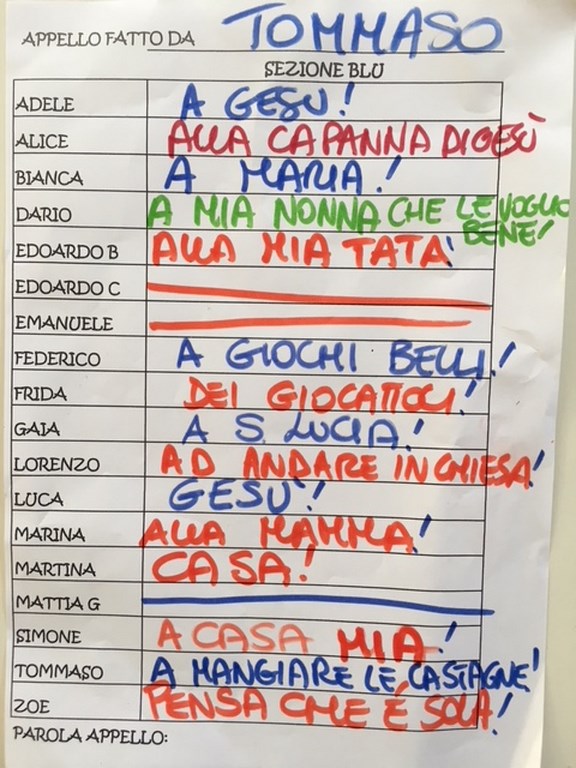 APPELLO FATTO DA TOMMASO
SEZIONE BLU
ADELE A GESU!
ALICE ALLA CAPANNA DI GESÙ
BIANCA A MARIA!
DARIO A MIA NONNA CHE LE VOGLIO
BENE!
EDOARDO B ALLA MIA TATA!
EDOARDO C
EMANUELE
FEDERICO A GIOCHI BELLI!
FRIDA DEI GIOCATTOLI!
GAIA A S. LUCIA!
LORENZO AD ANDARE IN CHIESA!
LUCA GESU'!
MARINA ALLA MAMMA!
MARTINA CASA!
MATTIA G
SIMONE A CASA MIA!
TOMMASO A MANGIARE LE CASTAGNE!
ZOE PENSA CHE É SOLA!
PAROLA APPELLO: